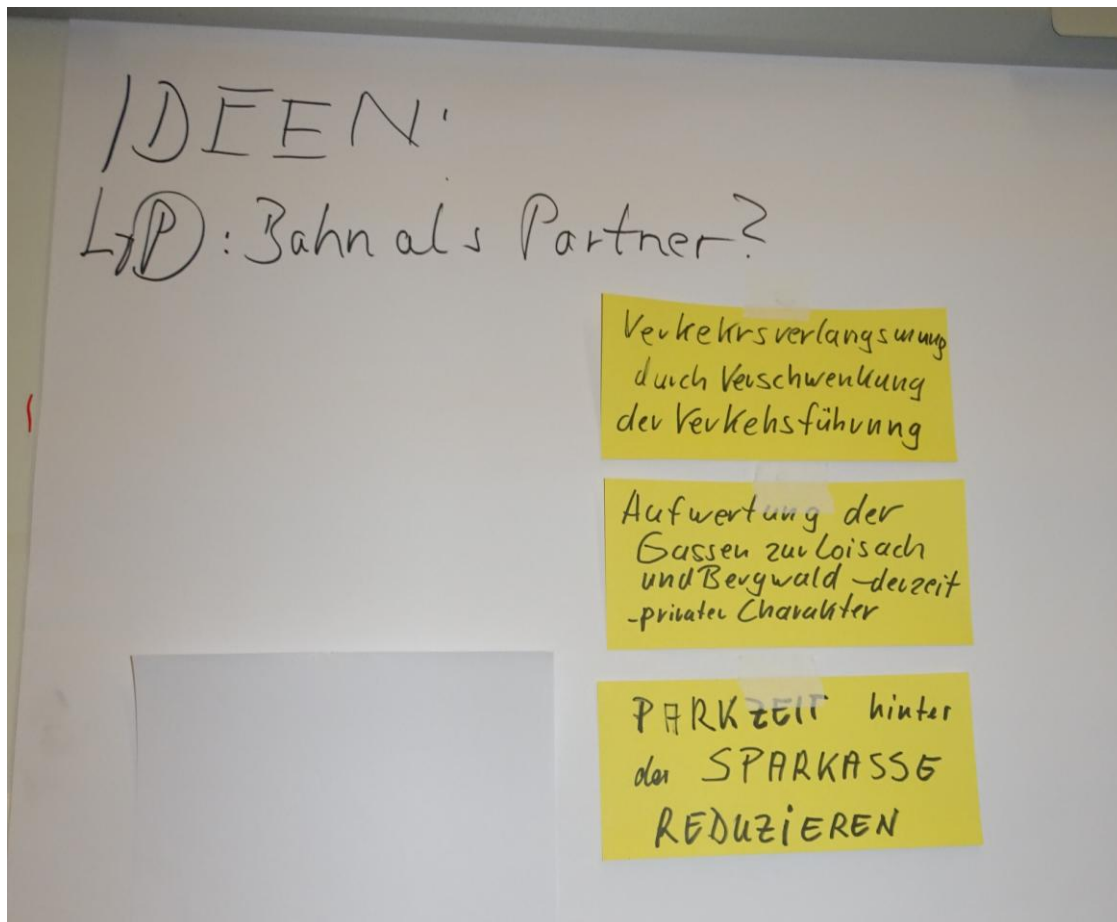 IDEEN:
↳ P : Bahn als Partner?
Verkehrsverlangsamung
durch Verschwenkung
der Verkehsführung
Aufwertung der
Gassen zur Loisach
und Bergwald - derzeit
- privater Charakter
PARKZEIT hinter
der SPARKASSE
REDUZIEREN